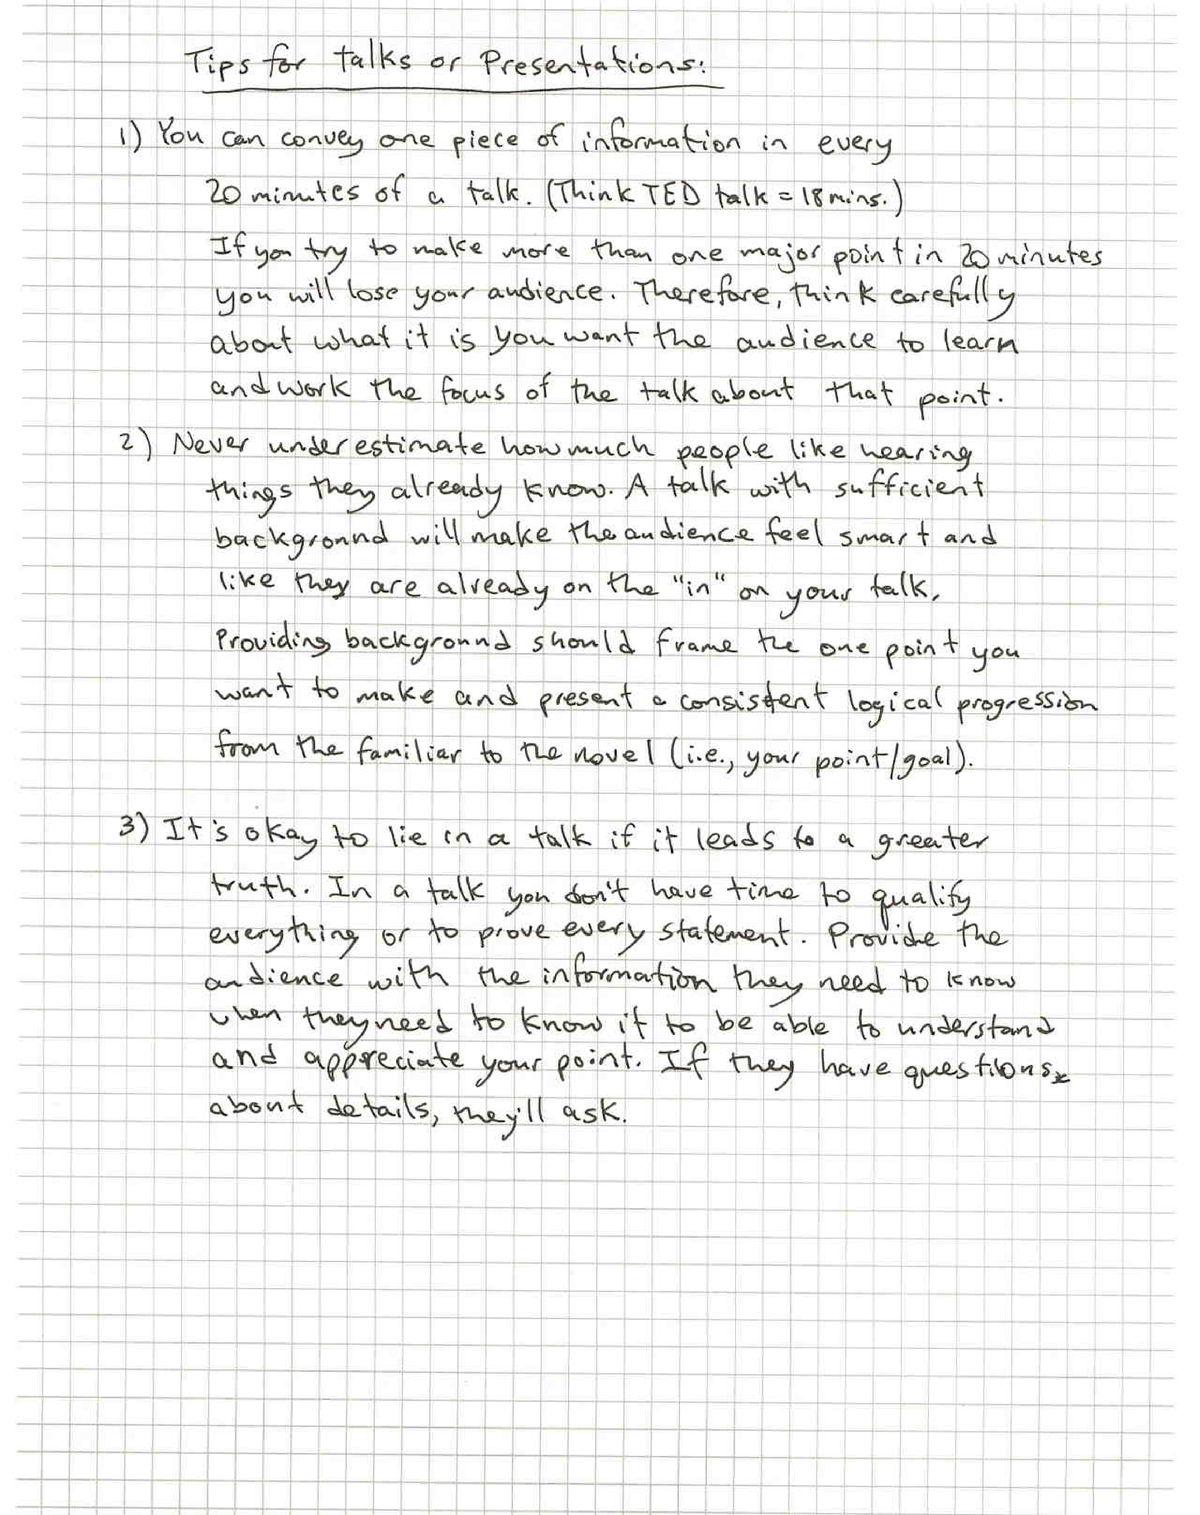 Tips for talks or Presentations:
1) You can convey one piece of information in every
20 minutes of a talk. (Think TED talk = 18 mins.)
If you try to make more than one major point in 20 minutes
you will lose your audience. Therefore, think carefully
about what it is you want the audience to learn
and work the focus of the talk about that point.
2) Never underestimate how much people like hearing
things they already know. A talk with sufficient
background will make the audience feel smart and
like they are already on the "in" on your talk.
Providing background should frame the one point you
want to make and present a consistent logical progression
from the familiar to the novel (i.e., your point/goal).
3) It's okay to lie in a talk if it leads to a greater
truth. In a talk you don't have time to qualify
everything or to prove every statement. Provide the
audience with the information they need to know
when they need to know it to be able to understand
and appreciate your point. If they have questions
about details, they'll ask.